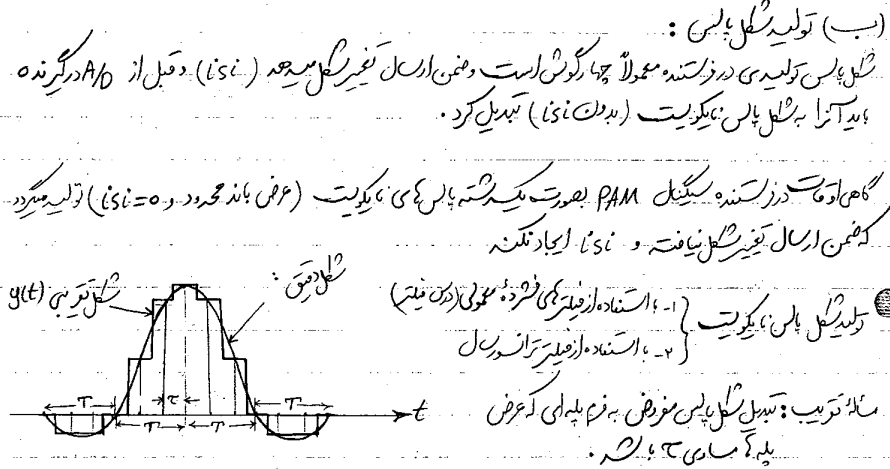 (ب) تولید شکل پالس :
شکل پالس تولیدی در فرستنده معمولاً چهارگوش است و ضمن ارسال تغییر شکل میدهد (isi) و قبل از A/D در گیرنده
باید آنرا به شکل پالس نایکویست (بدون isi) تبدیل کرد .
گاهی اوقات در فرستنده سیگنال PAM بصورت یکرشته پالس های نایکویست (عرض باند محدود و isi=0) تولید میگردد
که ضمن ارسال تغییر شکل نیافته و isi ایجاد نکند
تولید شکل پالس نایکویست
1- با استفاده از فیلترهای فشرده معمولی (درس فیلتر)
2- با استفاده از فیلتر ترانسورسال
شکل دقیق :
شکل تقریبی y(t)
T τ T
T T
t
مسأله تقریب : تبدیل شکل پالس مفروض به فرم پله ای که عرض
پله ها مساوی τ باشد .